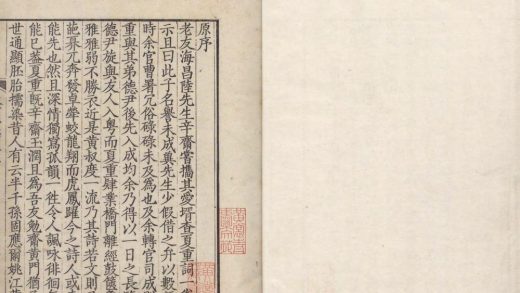 原序
老友海昌陸先生辛齋嘗攜其愛壻查夏重詞一
示且曰此子名譽未成冀先生少假借之弁以數
時余官曹署冗俗碌碌未及為也及余轉官司成
重與其弟德尹後先入成均余乃得以一日之長
德尹旋與友人入粵而夏重肄業橋門離經鼓篋
雅雅弱不勝衣近是黃叔度一流乃其詩若文則
葩采兀奔發卓犖蛟龍翔而虎鳳躍今之詩人或
能先也然且深情獨寫孤韻一徃令人諷咏徘徊
能已葢夏重既辛齋玉潤且爲吾友勉齋黃門猶
世通顯胚胎擩染昔人有云半千孫固應爾姚江